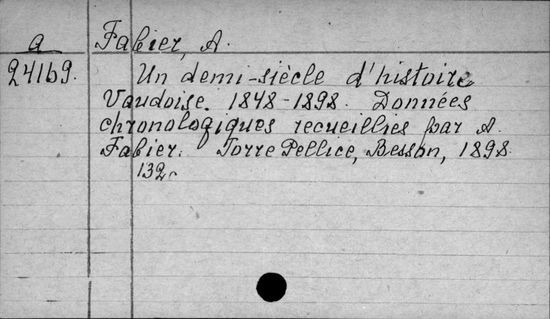 a
Fabier, A.
24169.
Un demi-siècle d'histoire
Vaudoise. 1848-1898. Données
chronologiques recueillies par A.
Fabier. Torre Pellice, Besson, 1898.
132